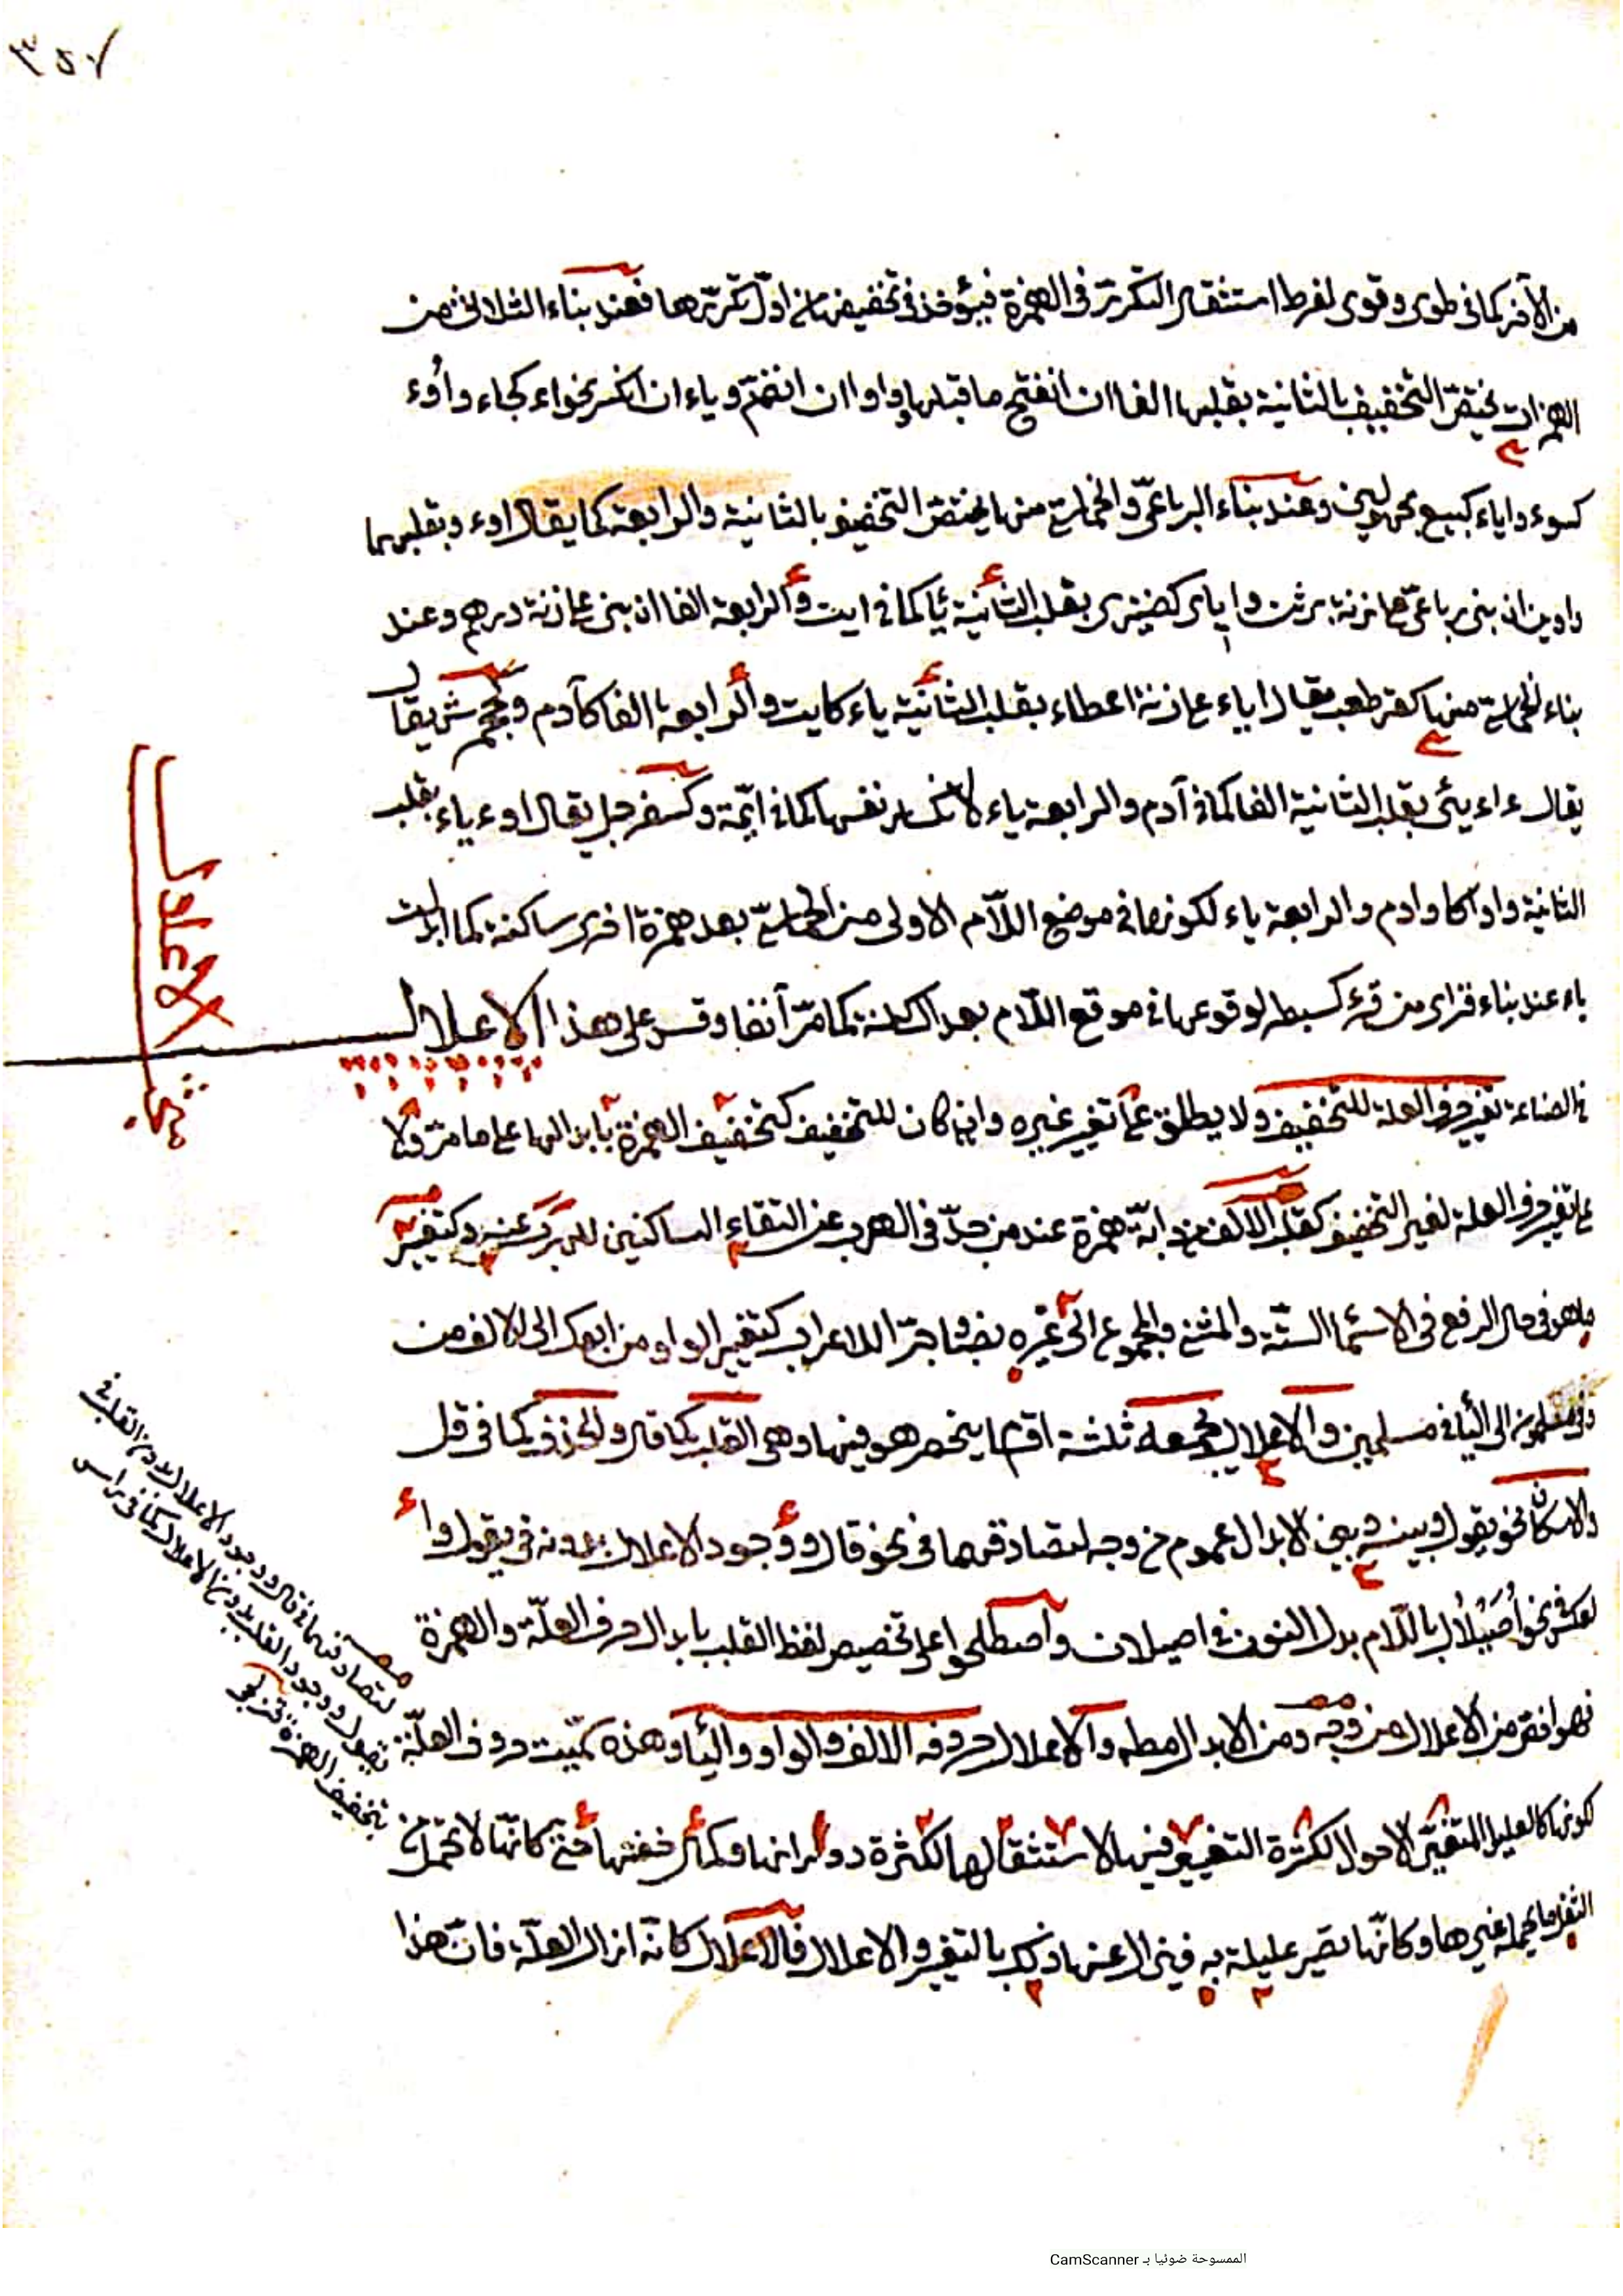 ٣٥٧
من الآخر كما في طوى وقوى لفرط استثقال التكرير في الهمزة فيؤخذ في تخفيفها من اول تكررها فعند بناء الثلاثي من
الهمزات يختص التخفيف بالثانية بقلبها الفا ان انفتح ما قبلها وواوا ان انضم وياء ان انكسر نحو اء كجاء واُوء
كسوء واياء كبيع مجهولين وعند بناء الرباعي والخماسي منها يختص التخفيف بالثانية والرابعة كما يقال اوء وبقلبهما
واوين ان بنى رباعي ما بزنة برثن وا ياى كضيزى بقلب الثانية ياء كما في ايت والرابعة الفا ان بنى على زنة درهم وعند
بناء الخماسي منها كقرطعب يقال اياء على زنة اعطاء بقلب الثانية ياء كايت والرابعة الفا كآدم وجحمرش يقال
يقال ءاءيئ بقلب الثانية الفا كما في آدم والرابعة ياء لانكسار نفسها كما في ائمة وكسفرجل يقال اوءياء بقلب
الثانية واوا كاوادم والرابعة ياء لكونها في موضع اللام الاولى من الخماسي بعد همزة اخرى ساكنة كما ابدلت
ياء عند بناء قراى من قرء كسبطر لوقوعها في موقع اللام بعد الساكنة كما مر آنفا وقس على هذا الاعلال
في الصناعة تغيير حرف العلة للتخفيف ولا يطلق على تغيير غيره وان كان للتخفيف كتخفيف الهمزة بابدالها على ما مر ولا
على تغيير حرف العلة لغير التخفيف كقلب الالف في دابة همزة عند من جد في الهرب عن التقاء الساكنين للهرب عنه وكتغيير
ما هو في حال الرفع في الاسماء الستة والمثنى والمجموع الى غيره نصبا وجرا للاعراب كتغيير الواو من ابوك الى الالف من
وفي مسلمون الى الياء في مسلمين والاعلال يجمعه ثلثة اقسام ينحصر هو فيها وهى القلب كما قال والحذف كما في قل
والاسكان نحو يقول وبينه وبين الابدال عموم من وجه لتصادقهما في نحو قال ووجود الاعلال بدونه في يقول و
العكس في نحو اُصَيْلال باللام بدل النون في اصيلان واصطلحوا على تخصيص لفظ القلب بابدال حرف العلة والهمزة
فهو اخص من الاعلال من وجه ومن الابدال مطلقا والاعلال حروفه الالف والواو والياء وهذه سميت حروف العلة
كونها كالعليل المتغير الاحوال لكثرة التغيير فيها لاستثقالها لكثرة دورانها وكمال خفتها حتى كانها لا تحتمل من
الثقل ما يحمله غيرها وكانها تصير عليلة به فيزال عنها ذلك بالتغيير والاعلال فالاعلال كانه ازال العلة فان هذا
الاعلال
مبحث
لتصادقهما في قال ووجود الاعلال بدون القلب في
يقول ووجود القلب بدون الاعلال كما في راس
بتخفيف الهمزة
الممسوحة ضوئيا بـ CamScanner